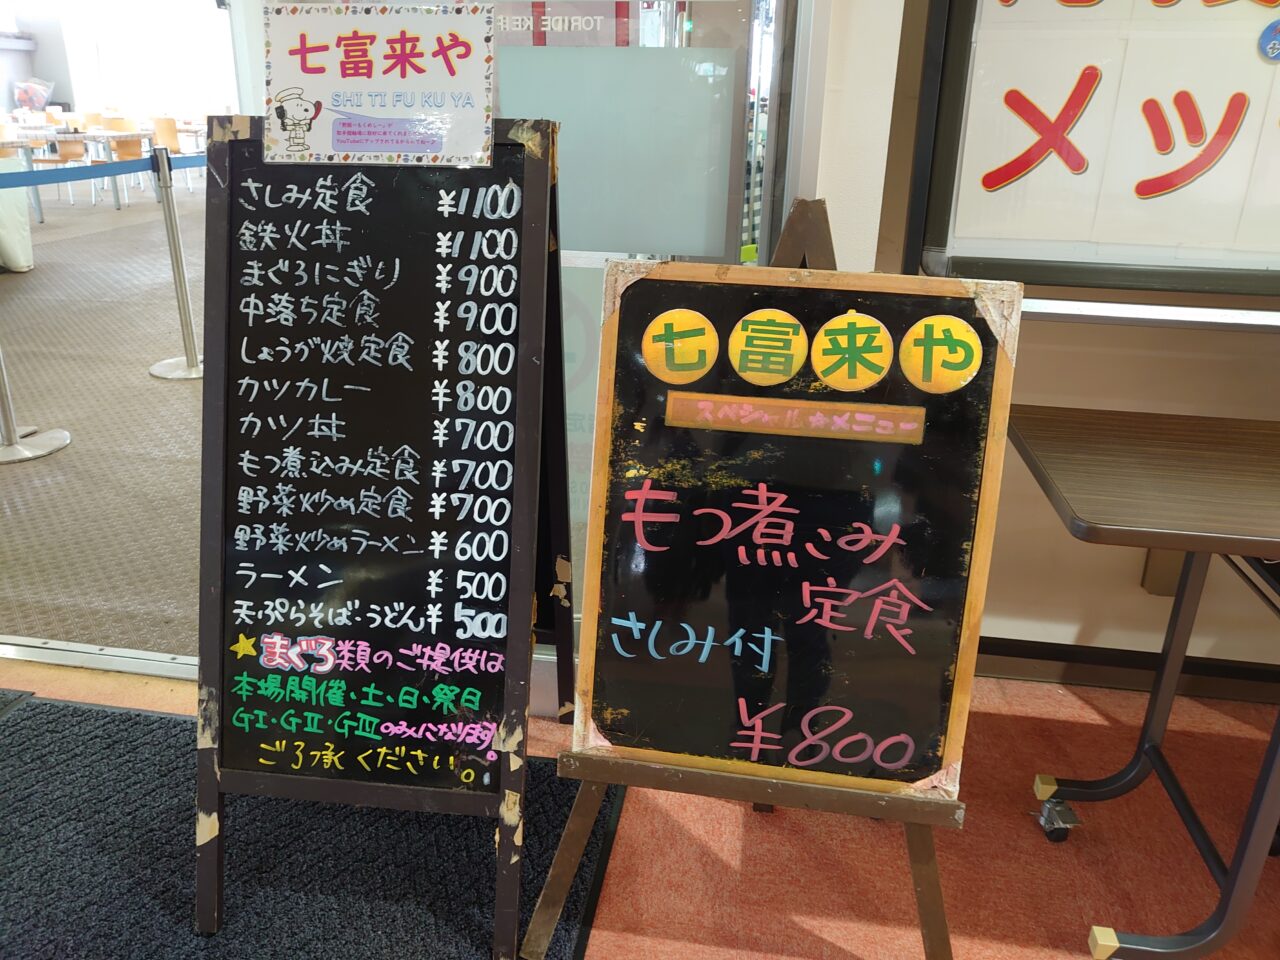 七富来や
SHI TI FU KU YA
取手競輪場に取材に来てくれました
YouTubeにアップされてるからみてね～♪
さしみ定食 ¥1100
鉄火丼 ¥1100
まぐろにぎり ¥900
中落ち定食 ¥900
しょうが焼定食 ¥800
カツカレー ¥800
カツ丼 ¥700
もつ煮込み定食 ¥700
野菜炒め定食 ¥700
野菜炒めラーメン ¥600
ラーメン ¥500
天ぷらそば・うどん ¥500
★まぐろ類のご提供は
本場開催・土、日・祭日
GI・GⅡ・GⅢのみになります。
ご了承ください。
TORIDE KEI
七富来や
スペシャル☆メニュー
もつ煮こみ
定食
さしみ付
¥800
メッ